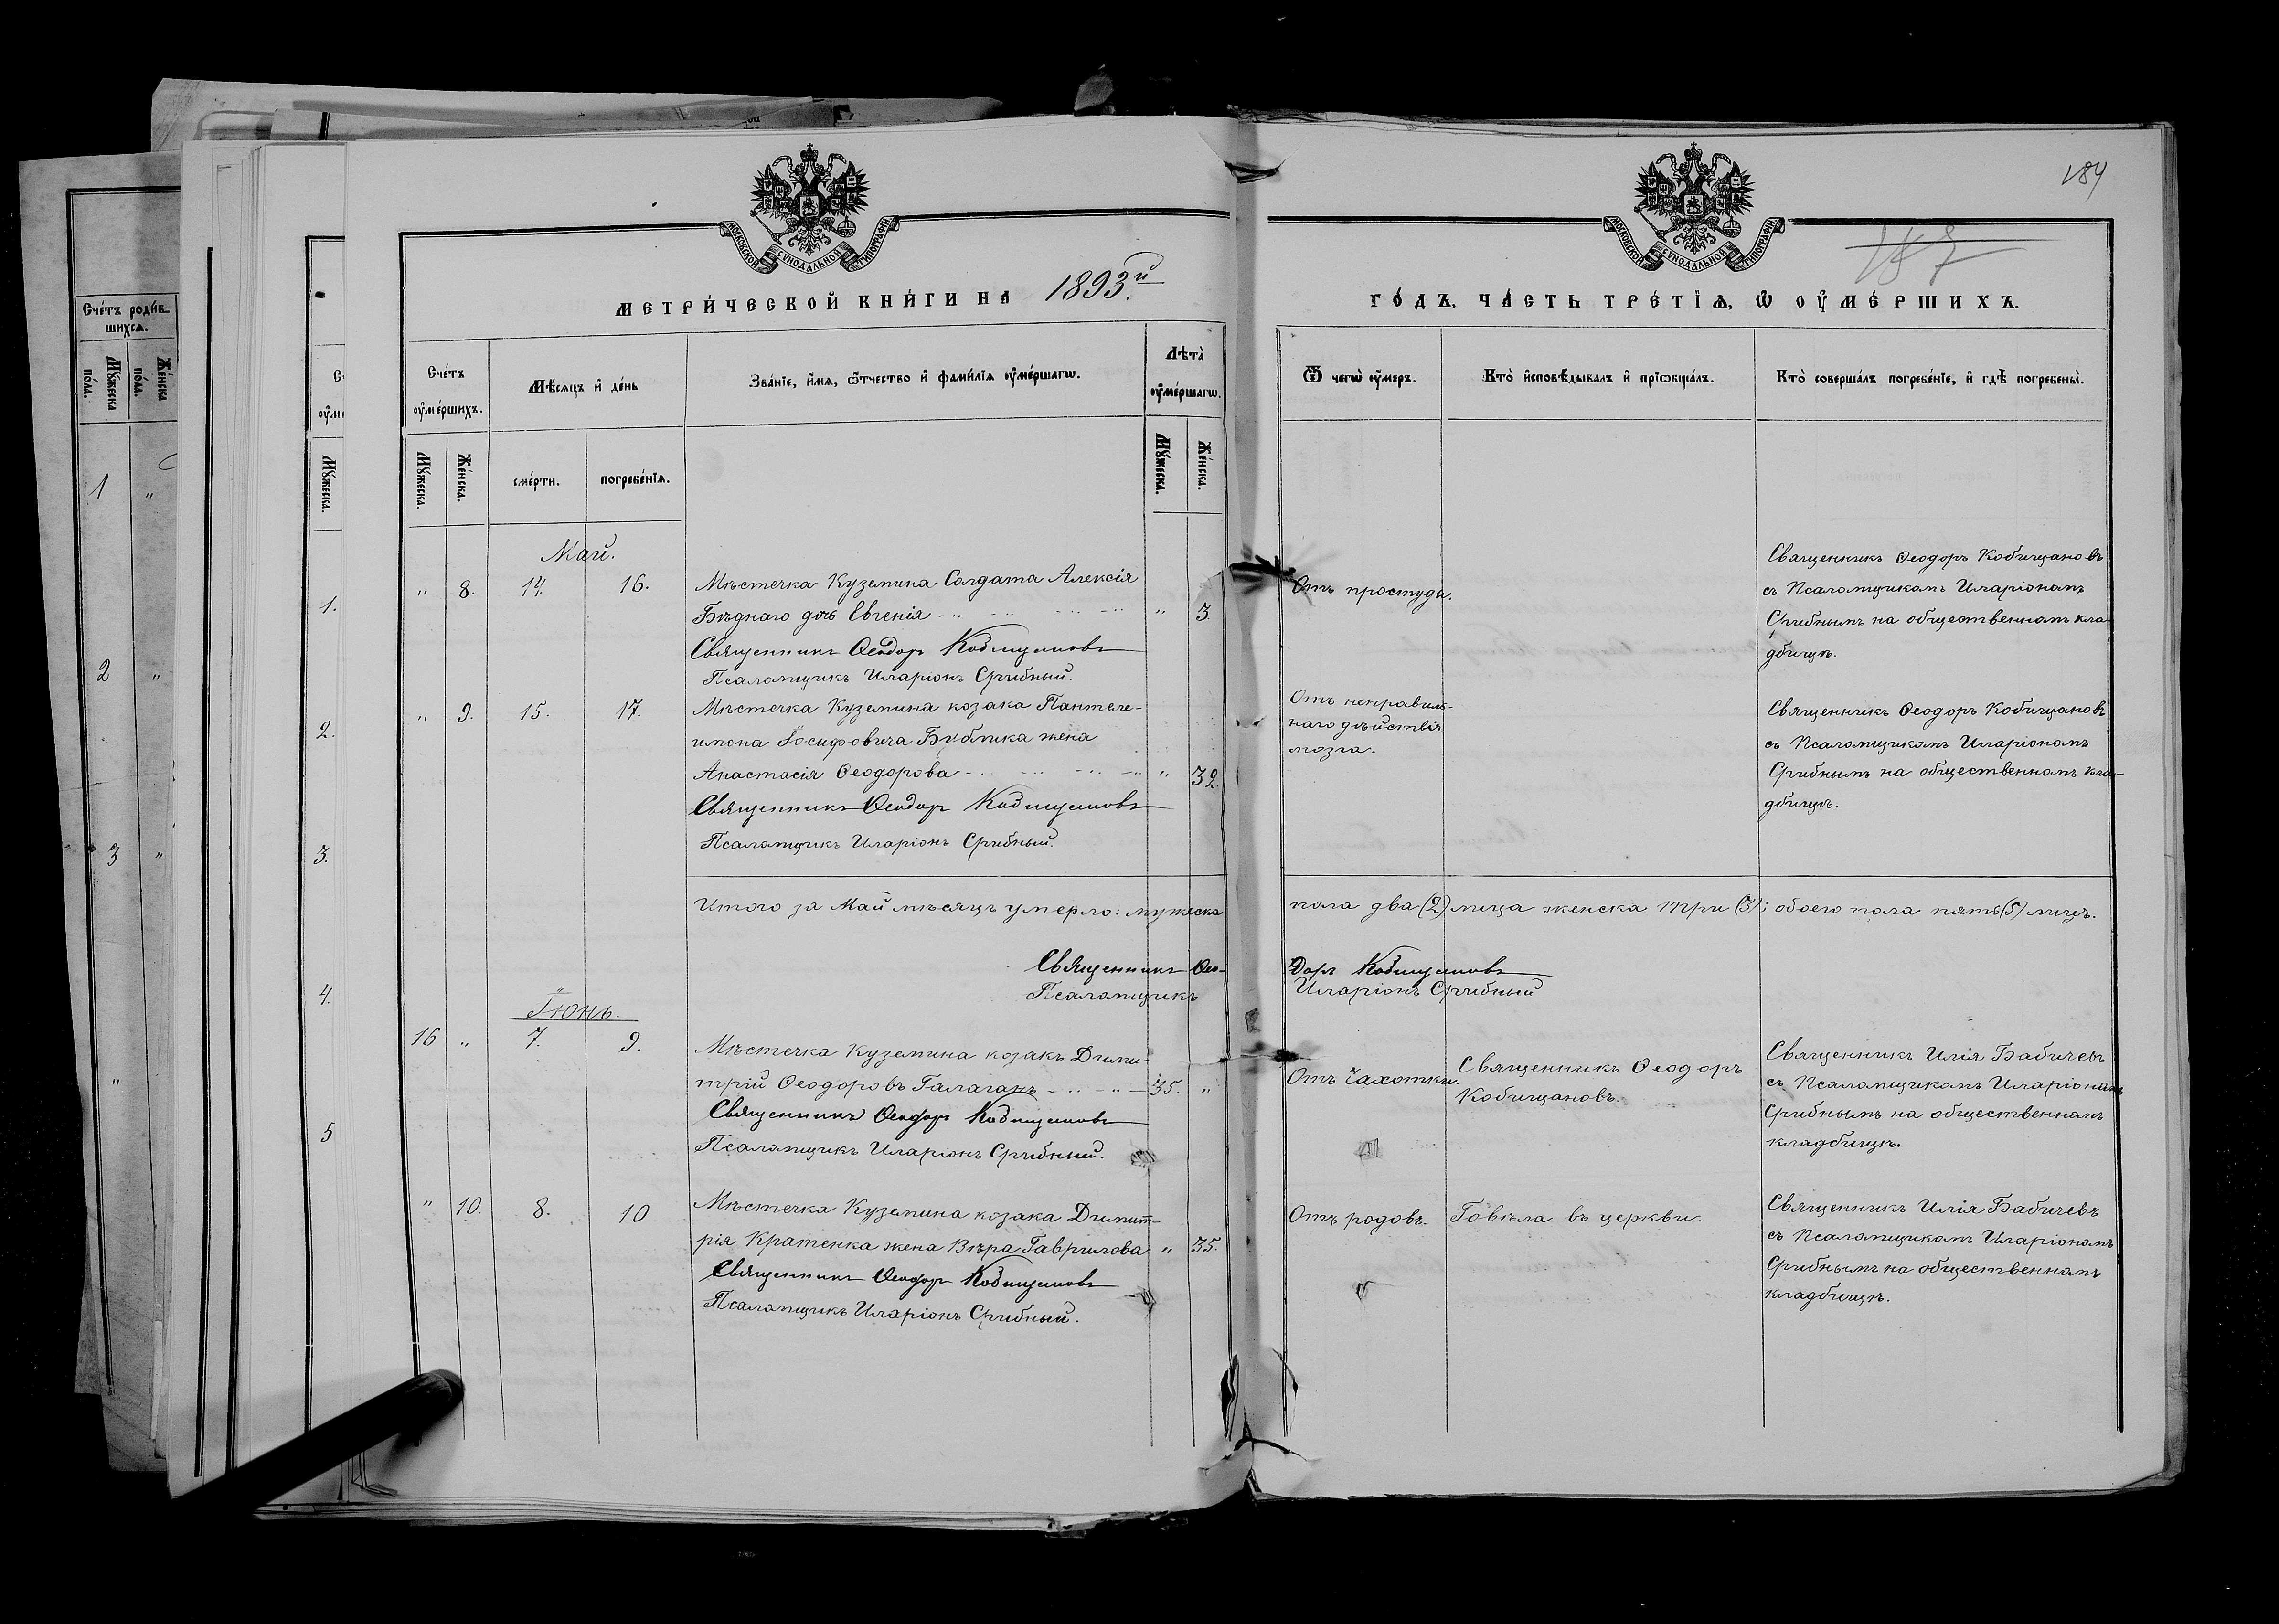 184
187
МОСКОВСКОЙ СѴНОДАЛЬНОЙ ТИПОГРАФІИ
МОСКОВСКОЙ СѴНОДАЛЬНОЙ ТИПОГРАФІИ
МЕТРИ́ЧЕСКОЙ КНИ́ГИ НА 1893й
ГО́ДЪ, ЧА́СТЬ ТРЕ́ТЇѦ, Ѿ ОУ҆МЕ́РШИХЪ.
Сче́тъ роди́в-
шихсѧ.
Мꙋ́жеска по́ла.
Же́нска по́ла.
1 "
2 "
3 "
"
Мꙋ́жеска.
1.
2.
3.
4.
5
Сче́тъ оу҆ме́ршихъ.
Мѣ́сѧцъ и҆ де́нь
Зва́нїе, и҆́мѧ, ѻ҆́тчество и҆ фами́лїѧ оу҆ме́ршагѡ.
Лѣта̀ оу҆ме́ршагѡ.
Ѿ чегѡ̀ оу҆́меръ.
Кто̀ и҆сповѣ́дывалъ и҆ прїѡбща́лъ.
Кто̀ соверша́лъ погребе́нїе, и҆ гдѣ̀ погребены̀.
Мꙋ́жеска.
Же́нска.
сме́рти.
погребе́нїѧ.
Мꙋ́жеска.
Же́нска.
Май.
" 8. 14. 16.
Мѣстечка Куземина Солдата Алексія
Бѣднаго дочь Евгенія " 3.
Священникъ Ѳеодоръ Кобищановъ
Псаломщикъ Иларіонъ Срибный.
Отъ простуды.
Священникъ Ѳеодоръ Кобищановъ
съ Псаломщикомъ Иларіономъ
Срибнымъ на общественномъ кла-
дбищѣ.
" 9. 15. 17.
Мѣстечка Куземина козака Пантеле-
имона Іосифовича Бублика жена
Анастасія Ѳеодорова " 32.
Священникъ Ѳеодоръ Кобищановъ
Псаломщикъ Иларіонъ Срибный.
Отъ неправиль-
наго дѣйствія
мозга.
Священникъ Ѳеодоръ Кобищановъ
съ Псаломщикомъ Иларіономъ
Срибнымъ на общественномъ кла-
дбищѣ.
Итого за Май мѣсяцъ умерло: мужеска пола два (2) лица женска три (3); обоего пола пять (5) лицъ.
Священникъ Ѳео-доръ Кобищановъ
Псаломщикъ Иларіонъ Срибный
Іюнь.
16 " 7. 9.
Мѣстечка Куземина козакъ Дими-
трій Ѳеодоровъ Галаганъ 35. "
Священникъ Ѳеодоръ Кобищановъ
Псаломщикъ Иларіонъ Срибный.
Отъ чахотки.
Священникъ Ѳеодоръ
Кобищановъ.
Священникъ Илія Бабичевъ
съ Псаломщикомъ Иларіономъ
Срибнымъ на общественномъ
кладбищѣ.
" 10. 8. 10
Мѣстечка Куземина козака Димит-
рія Кратенка жена Вѣра Гаврилова " 35.
Священникъ Ѳеодоръ Кобищановъ
Псаломщикъ Иларіонъ Срибный.
Отъ родовъ.
Говѣла въ церкви.
Священникъ Илія Бабичевъ
съ Псаломщикомъ Иларіономъ
Срибнымъ на общественномъ
кладбищѣ.